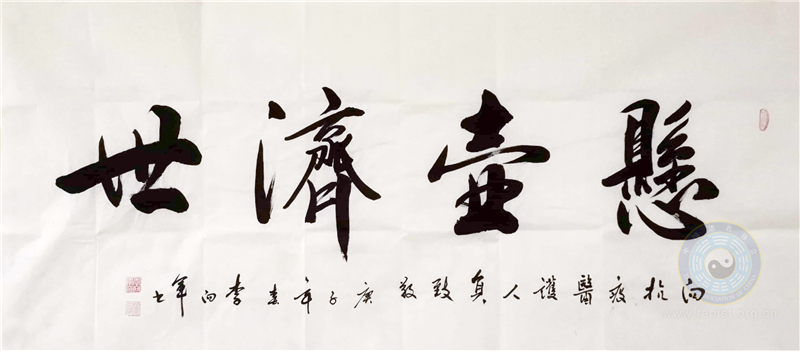 懸壺濟世
向抗疫醫護人員致敬庚子年春李向軍书